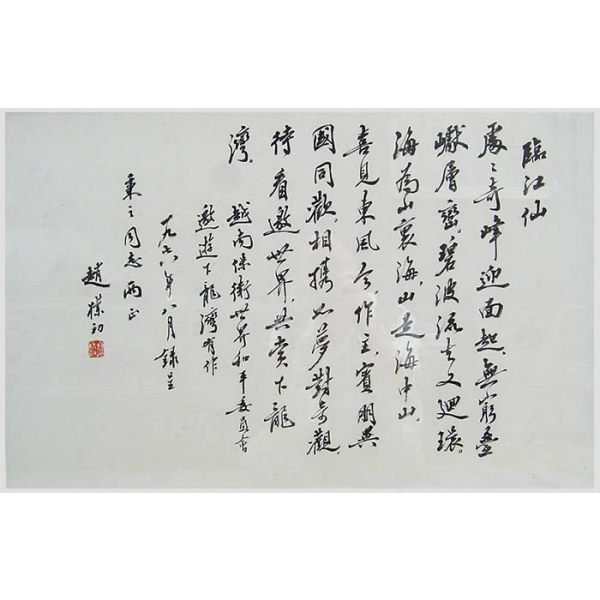 臨江仙
處處奇峰迎面起,無窮疊
巘層巒。碧波流去又迴環。
海為山裏海,山是海中山。
喜見東風今作主,賓朋異
國同歡。相攜如夢對奇觀。
待看邀世界,共賞下龍
灣。
越南保衛世界和平委員會
邀遊下龍灣有作
一九七八年八月錄呈
秉之同志兩正
趙樸初